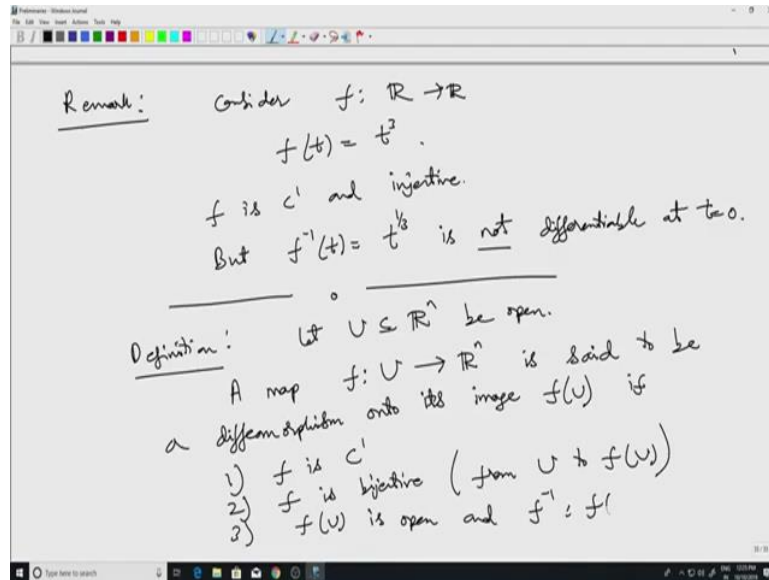 Preliminaries - Windows Journal
File Edit View Insert Actions Tools Help
Remark: Consider f: ℝ → ℝ
f(t) = t³.
f is C¹ and injective.
But f⁻¹(t) = t^{1/3} is not differentiable at t=0.
Definition: Let U ⊆ ℝⁿ be open.
A map f: U → ℝⁿ is said to be
a diffeomorphism onto its image f(U) if
1) f is C¹
2) f is bijective (from U to f(U))
3) f(U) is open and f⁻¹ : f(
Type here to search